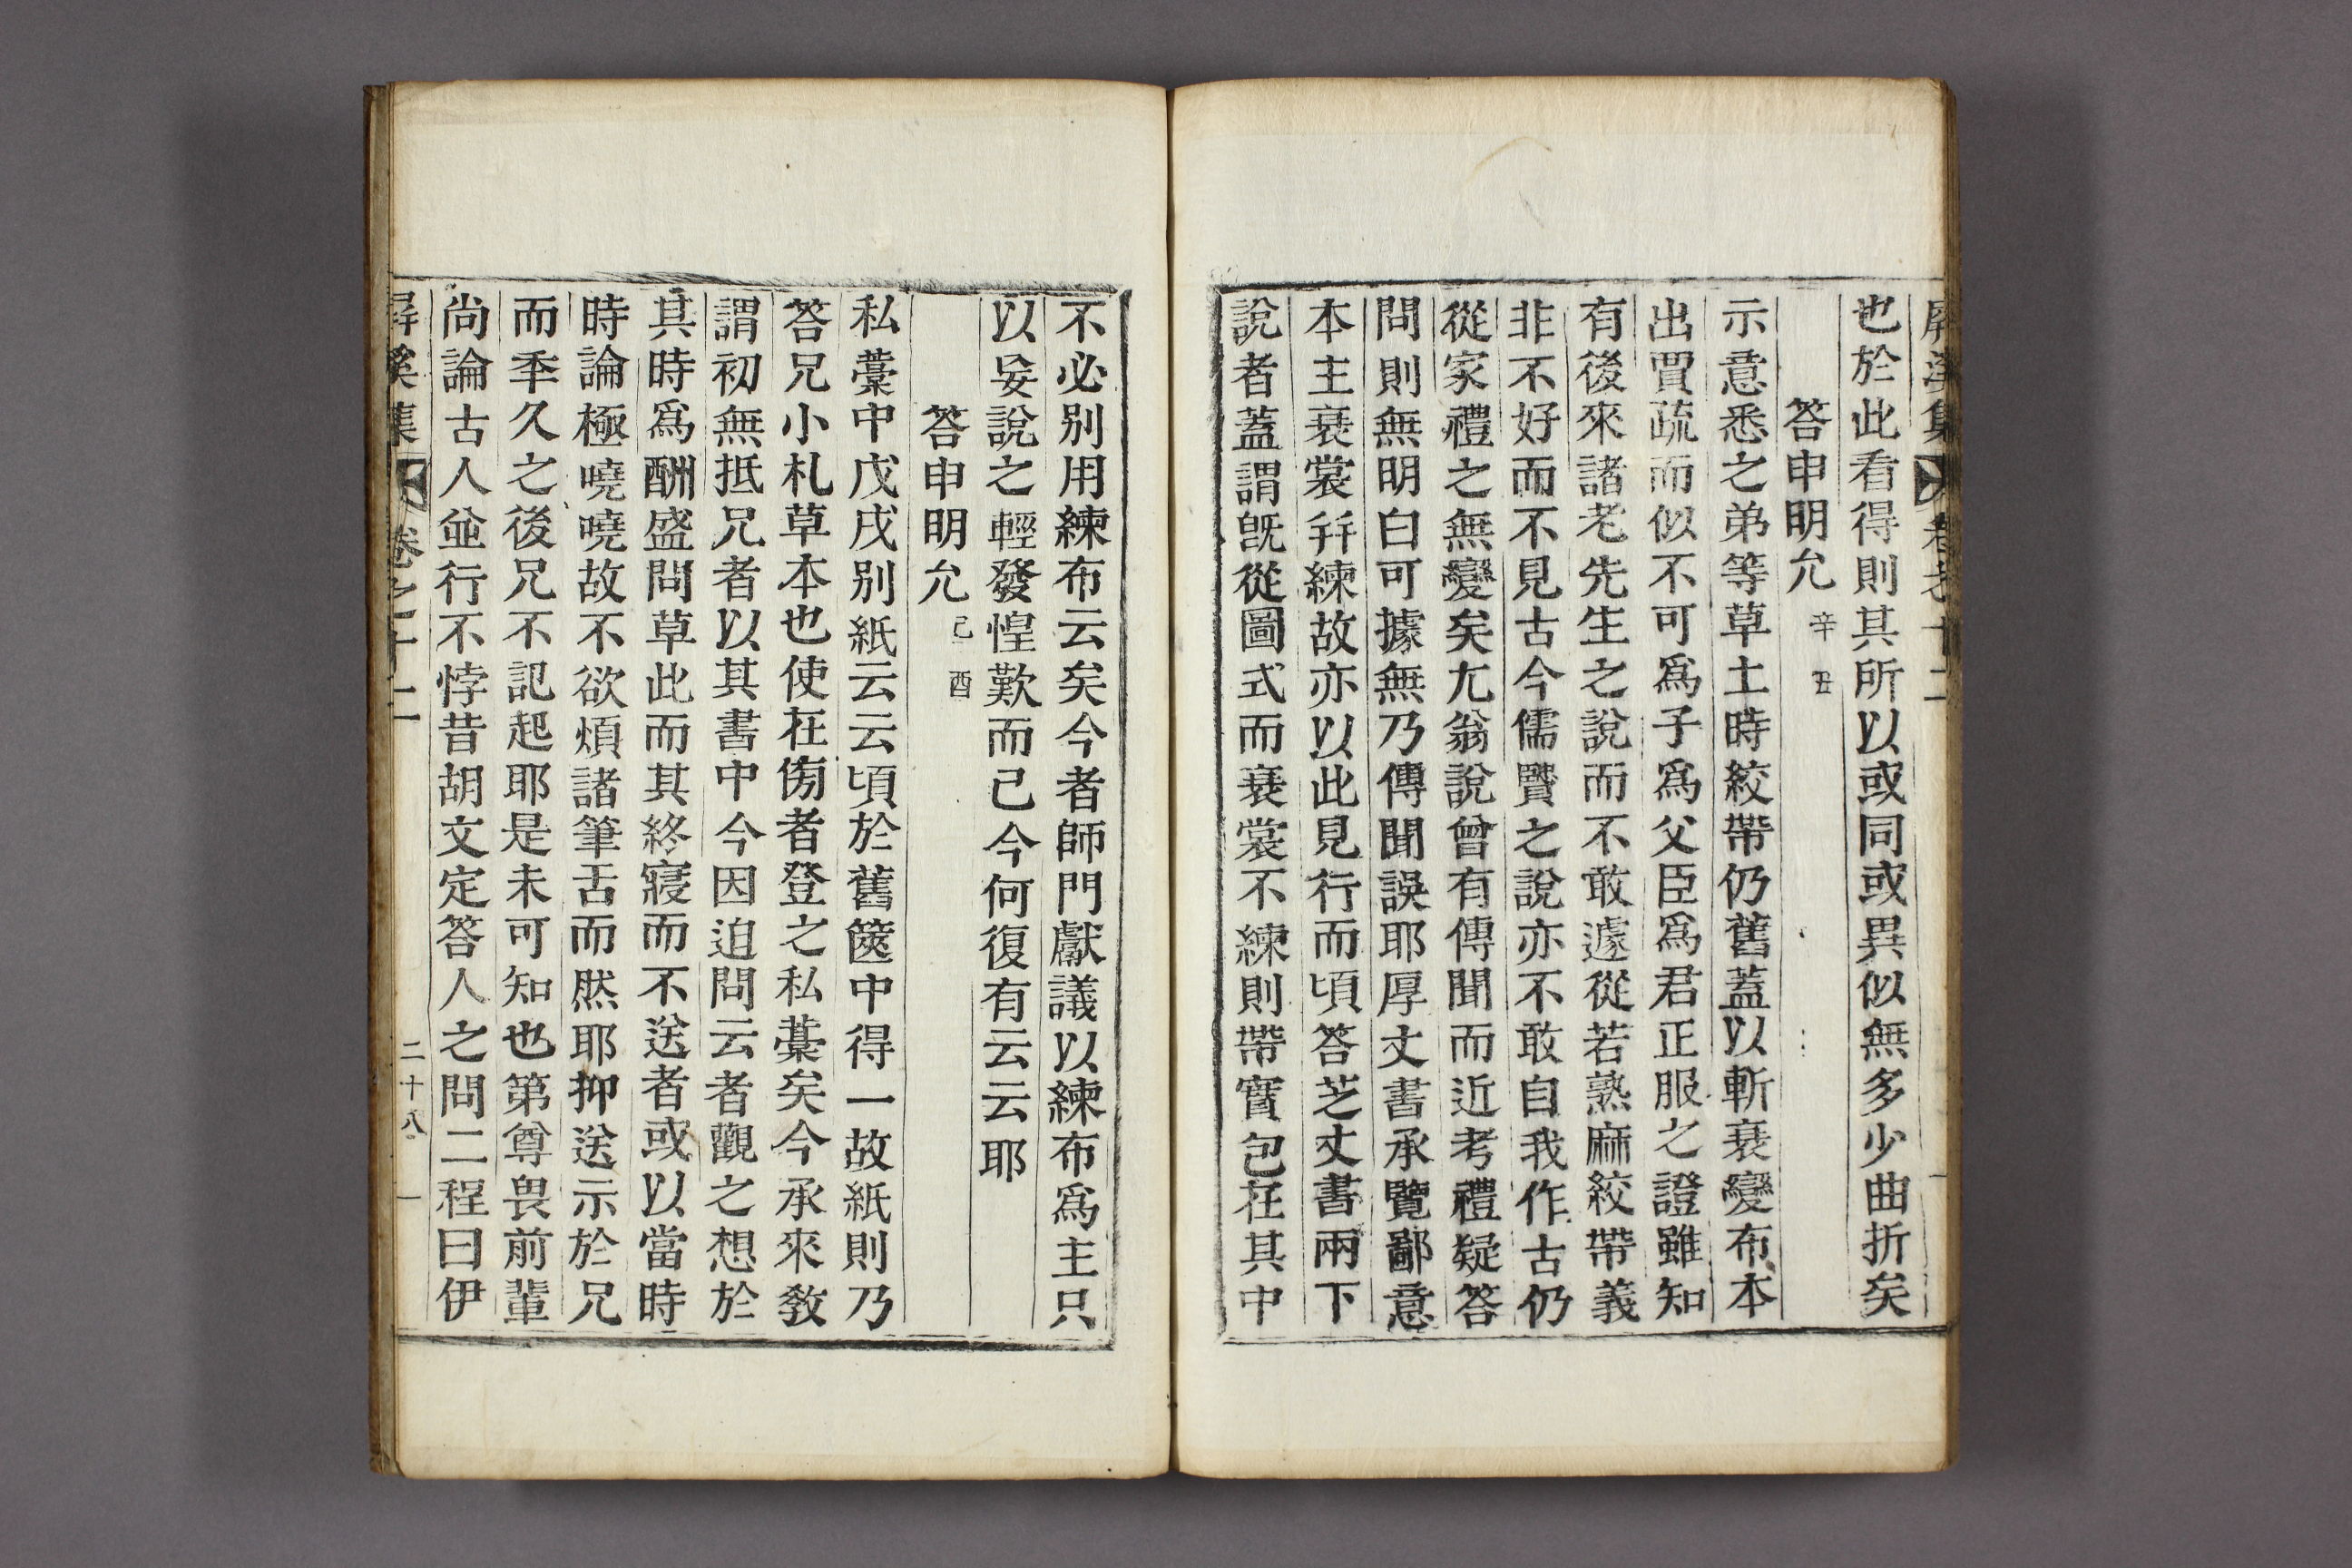 屛溪集 卷之十二
也於此看得則其所以或同或異似無多少曲折矣
答申明允 辛丑
示意悉之弟等草土時絞帶仍舊蓋以斬衰變布本
出賈疏而似不可爲子爲父臣爲君正服之證雖知
有後來諸老先生之說而不敢遽從若熟麻絞帶義
非不好而不見古今儒賢之說亦不敢自我作古仍
從家禮之無變矣尤翁說曾有傳聞而近考禮疑答
問則無明白可據無乃傳聞誤耶厚丈書承覽鄙意
本主衰裳幷練故亦以此見行而頃答芝丈書兩下
說者蓋謂旣從圖式而衰裳不練則帶實包在其中
不必別用練布云矣今者師門獻議以練布爲主只
以妄說之輕發惶歎而已今何復有云云耶
答申明允 己酉
私藁中戊戌別紙云云頃於舊篋中得一故紙則乃
答兄小札草本也使在傍者登之私藁矣今承來敎
謂初無抵兄者以其書中今因迫問云者觀之想於
其時爲酬盛問草此而其終寢而不送者或以當時
時論極嘵嘵故不欲煩諸筆舌而然耶抑送示於兄
而年久之後兄不記起耶是未可知也第尊畏前輩
尙論古人並行不悖昔胡文定答人之問二程曰伊
屛溪集 卷之十二 二十八